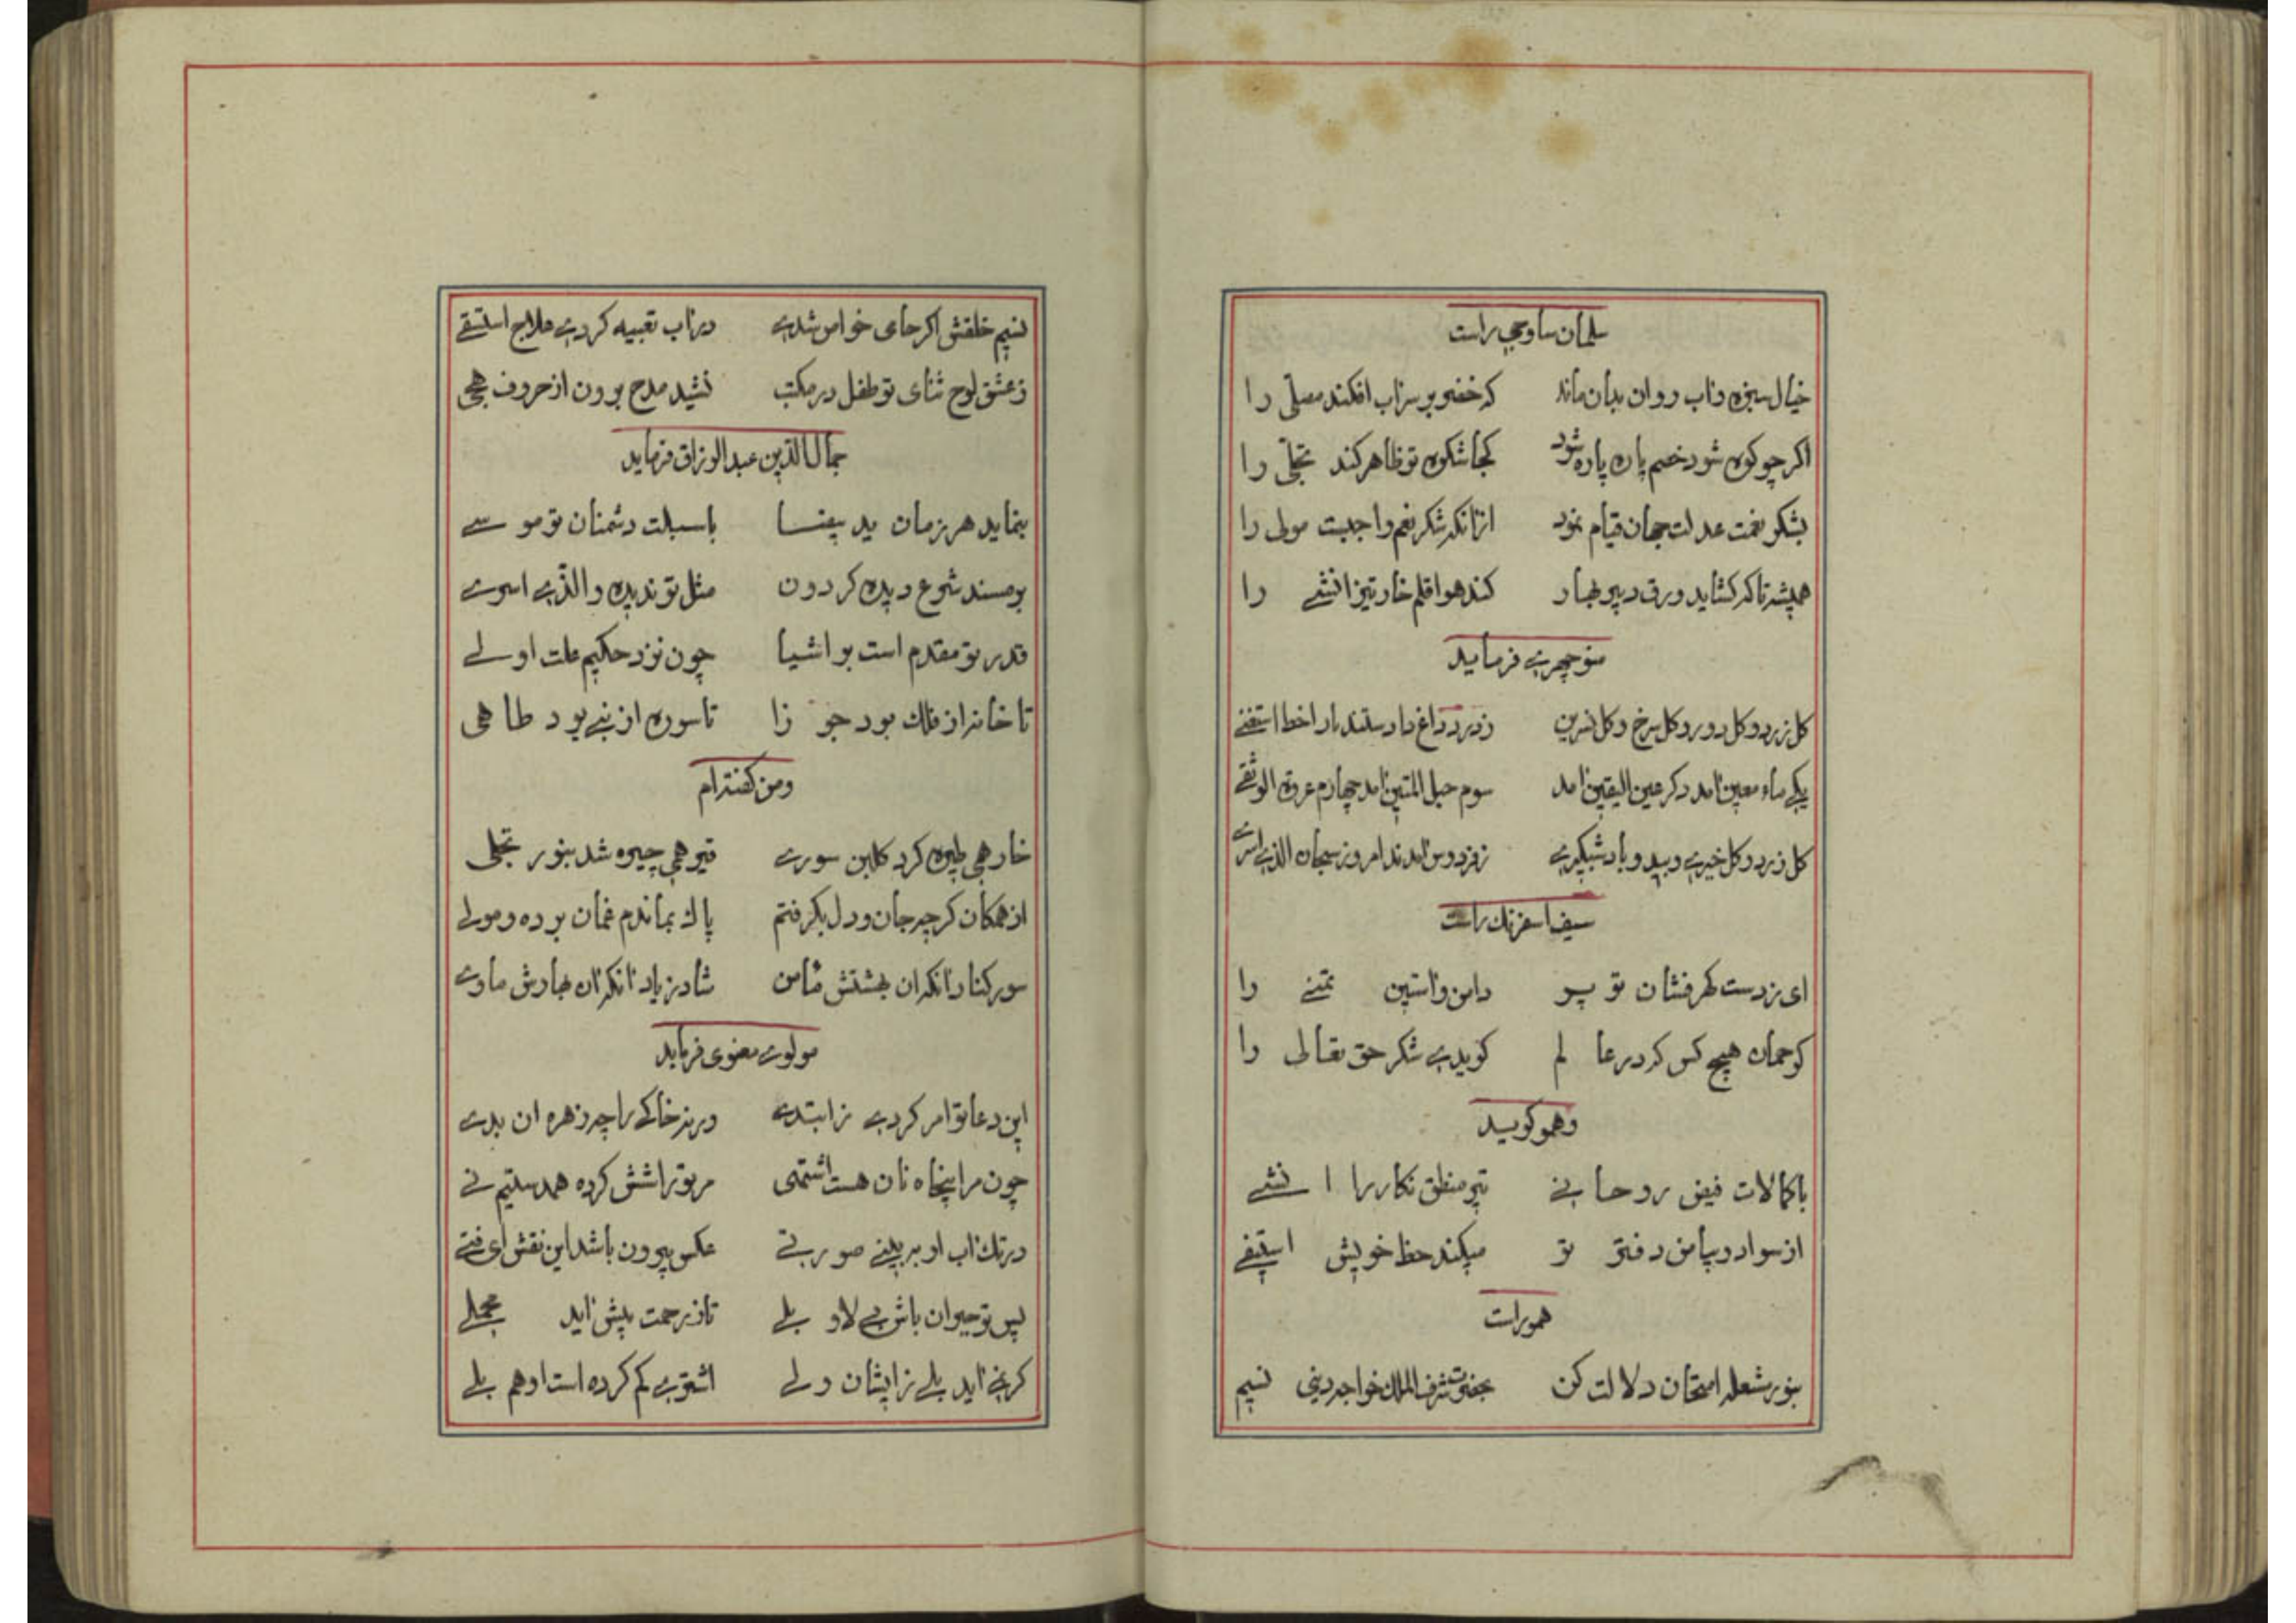 سلمان ساوجی راست
خیال سبزه و آب روان بدان ماند که خضر بر سر آب افکند مصلّی را
اکر چو کوه شود خصم پاره پاره شود کجا شکوه تو ظاهر کند تجلّی را
بشکر نعمت عدلت جهان قیام نمود ازانکه شکر نعم واجبست مولی را
همیشه تا که کشاید ورق دبیر بهار کند هوا قلم خار تیز انشی را
منوچهری فرماید
کل زرد و کل دورو و کل سرخ و کل نسرین ز درد و داغ دادستند ما را خط استغنی
یکی ماء معین آمد دکر عین الیقین آمد سوم حبل المتین آمد چهارم عروة الوثقی
کل زرد و کل خیری و بید و باد شبکیری ز فردوس آمدند امروز سبحان الذی اسری
سیف اسفرنک راست
ای ز دست کهرفشان تو پر دامن و آستین تمنی را
کو جهان هیچ کس که در عالم کویدی شکر حق تعالی را
وهمو کوید
با کمالات فیض روحانی تیر منطق نکار را انشی
از سواد و بیاض دفتر تو میکند حظ خویش استیفی
همو راست
بنور شعله امتحان دلالت کن بحضرت شرف الملک خواجه دینی نسیم
نسیم خلقش اکر جای خواص شدی در آب تعبیه کردی علاج استسقی
ز عشق لوح ثنای تو طفل در مکتب نشید مدح برون از حروف هجی
جمال الدین عبدالرزاق فرماید
بنماید هر زمان ید بیضا با سبلت دشمنان تو موسی
بر مسند شرع دیده کردون مثل تو ندیده والذی اسری
قدر تو مقدم است بر اشیا چون نزد حکیم علت اولی
تا خانه از فلک بود جوزا تا سوره از نبی بود طاهی
ومن کفته ام
خار همی طیره کرد کلبن سوری قیر همی چیره شد بنور تجلی
از همکان کرچه جان و دل بکرفتم پاک بماندم غمان برده و مولی
سور کناد آنکه ان بهشتش مامن شاد زیاد آنکه ان بهارش ماوی
مولوی معنوی فرماید
این دعا تو امر کردی ز ابتدی ورنه خاکی را چه زهره ان بدی
چون مرا پنجاه نان هست اشتهی مر ترا شش کرده همدستیم نی
در تک آب ار ببینی صورتی عکس بیرون باشد این نقش ای فتی
پس تو حیران باش بی لا و بلی تا ز رحمت پیش آید محملی
کر نمی آید بلی زایشان ولی اشتری کم کرده است او هم بلی